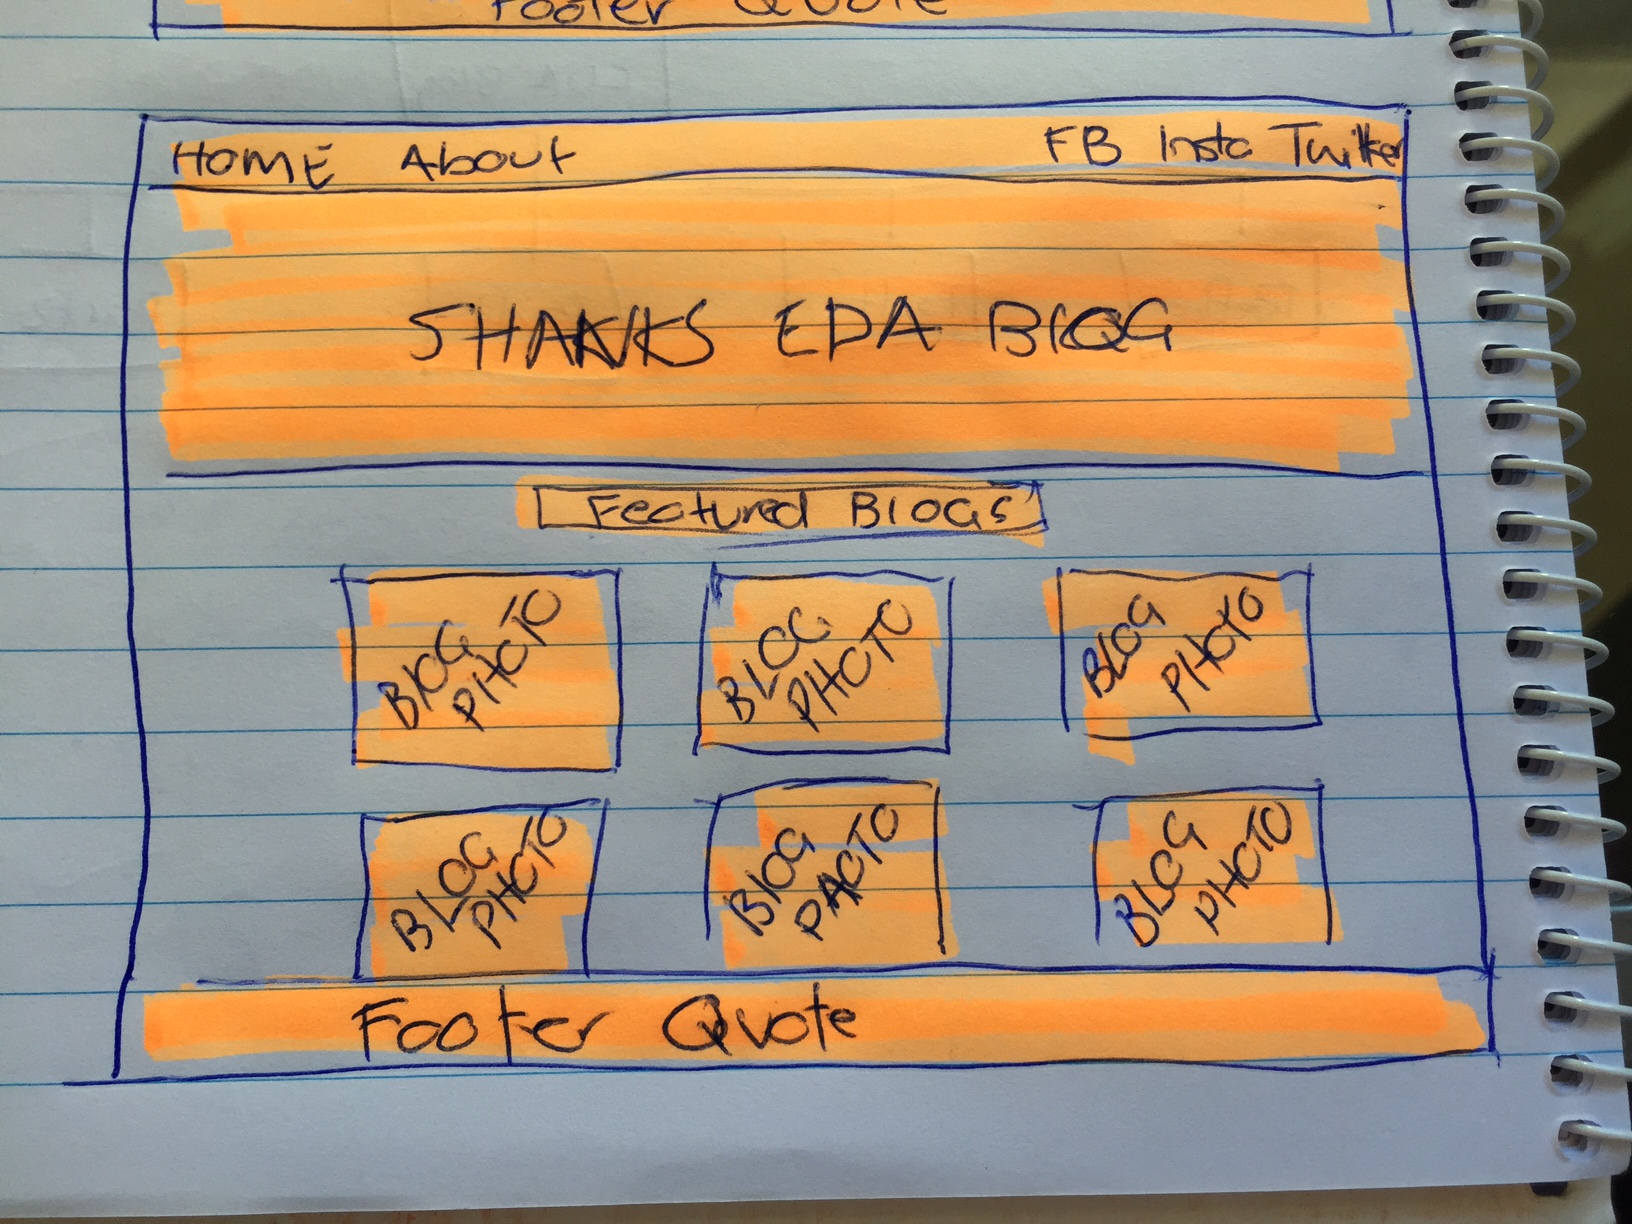 Footer Quote
HOME About FB Insta Twitter
SHANKS EDA BLOG
Featured Blogs
BLOG PHOTO
BLOG PHOTO
BLOG PHOTO
BLOG PHOTO
BLOG PHOTO
BLOG PHOTO
Footer Quote